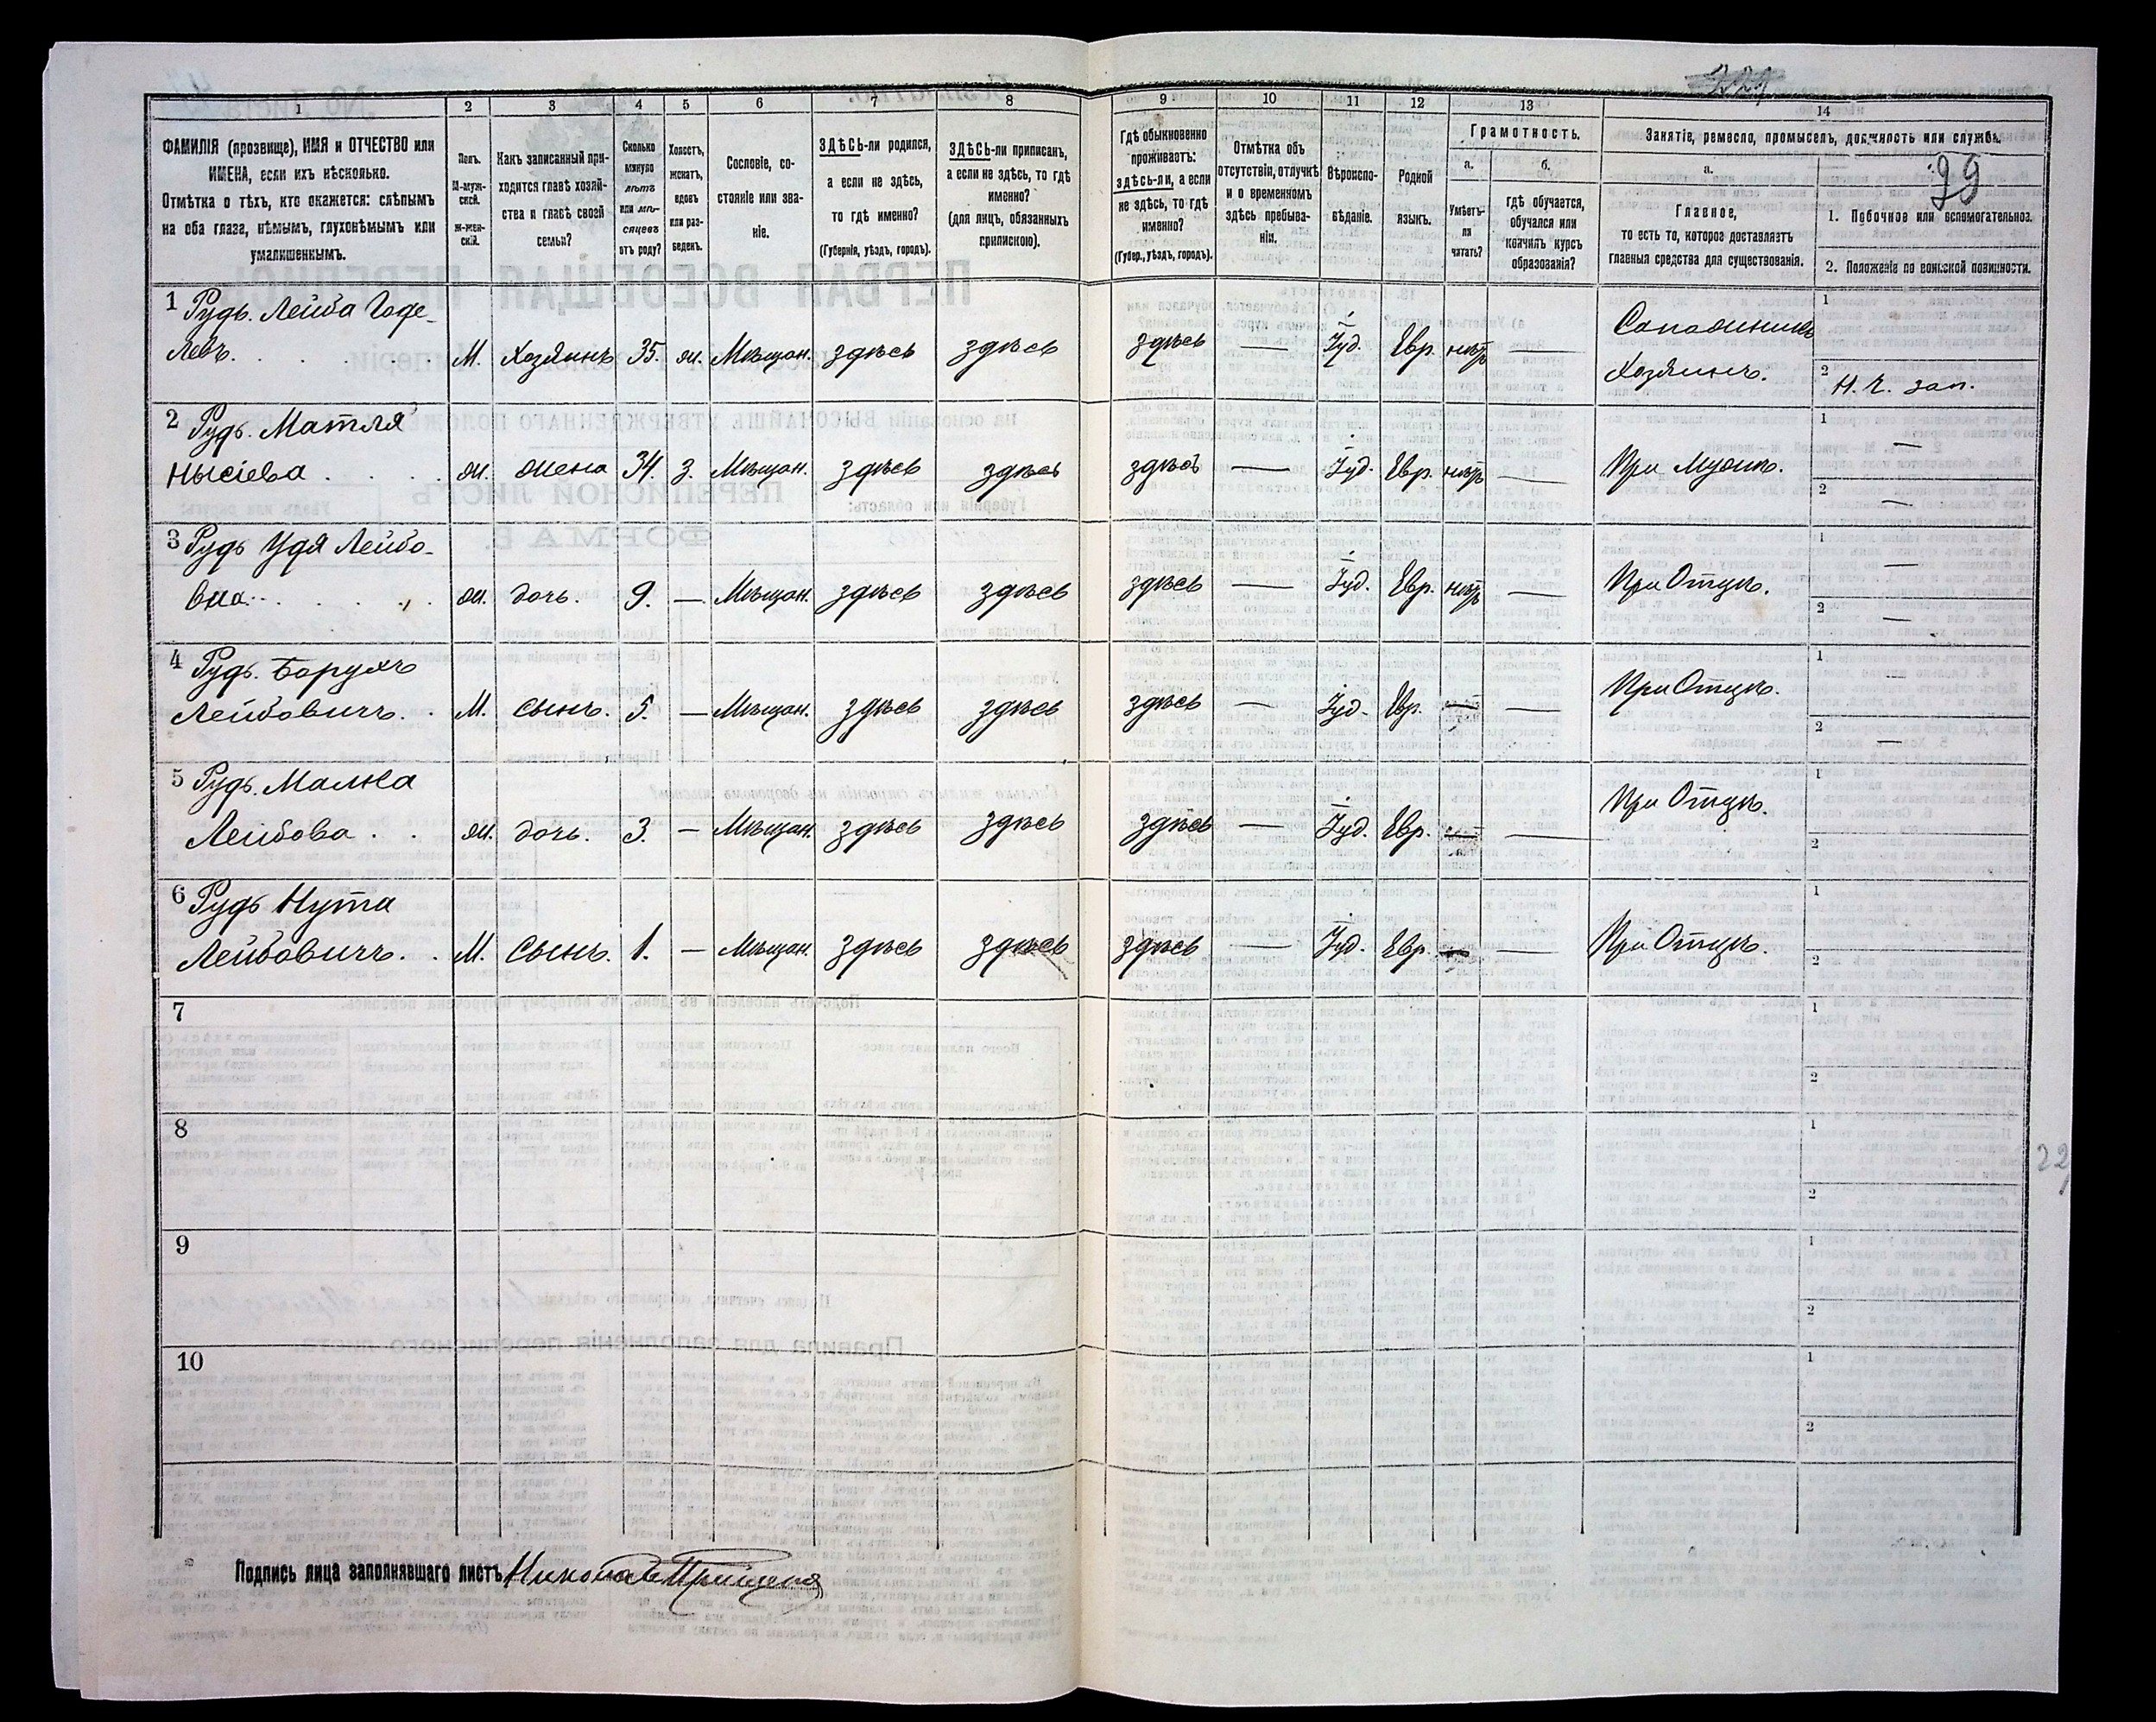 1
2
3
4
5
6
7
8
9
10
11
12
13
14
ФАМИЛІЯ (прозвище), ИМЯ и ОТЧЕСТВО или
ИМЕНА, если ихъ нѣсколько.
Отмѣтка о тѣхъ, кто окажется: слѣпымъ
на оба глаза, нѣмымъ, глухонѣмымъ или
умалишеннымъ.
Полъ.
М-муж-
ской.
Ж-жен-
скій.
Какъ записанный при-
ходится главѣ хозяй-
ства и главѣ своей
семьи?
Сколько
минуло
лѣтъ
или мѣ-
сяцевъ
отъ роду?
Холостъ,
женатъ,
вдовъ
или раз-
веденъ.
Сословіе, со-
стояніе или зва-
ніе.
ЗДѢСЬ-ли родился,
а если не здѣсь,
то гдѣ именно?
(Губернія, уѣздъ, городъ).
ЗДѢСЬ-ли приписанъ,
а если не здѣсь, то гдѣ
именно?
(для лицъ, обязанныхъ
припискою).
Гдѣ обыкновенно
проживаетъ:
здѣсь-ли, а если
не здѣсь, то гдѣ
именно?
(Губер., уѣздъ, городъ).
Отмѣтка объ
отсутствіи, отлучкѣ
и о временномъ
здѣсь пребыва-
ніи.
Вѣроиспо-
вѣданіе.
Родной
языкъ.
Грамотность.
а.
Умѣетъ-
ли
читать?
б.
гдѣ обучается,
обучался или
кончилъ курсъ
образованія?
Занятіе, ремесло, промыселъ, должность или служба.
а.
Главное,
то есть то, которое доставляетъ
главныя средства для существованія.
29
1. Побочное или вспомогательное.
2. Положеніе по воинской повинности.
1 Рудь. Лейба Годе-
левъ. М. Хозяинъ 35. ж. Мѣщан. здѣсь здѣсь здѣсь — Іуд. Евр. нѣтъ —
Сапожникъ
Хозяинъ.
1
2 Н. Ч. зап.
2 Рудь. Матля
Нысіева ж. жена 34. з. Мѣщан. здѣсь здѣсь здѣсь — Іуд. Евр. нѣтъ — При Мужѣ.
1 —
2 —
3 Рудь Удя Лейбо-
вна ж. дочь. 9. — Мѣщан. здѣсь здѣсь здѣсь — Іуд. Евр. нѣтъ — При Отцѣ.
1 —
2 —
4 Рудь. Борухъ
Лейбовичъ. М. сынъ. 5. — Мѣщан. здѣсь здѣсь здѣсь — Іуд. Евр. — При Отцѣ.
1 —
2 —
5 Рудь. Малка
Лейбова ж. дочь. 3. — Мѣщан. здѣсь здѣсь здѣсь — Іуд. Евр. — При Отцѣ.
1
2
6 Рудь Нута
Лейбовичъ. М. Сынъ. 1. — Мѣщан. здѣсь здѣсь здѣсь — Іуд. Евр. — При Отцѣ.
1
2
7
1
2
8
1
2
22
9
1
2
10
1
2
Подпись лица заполнявшаго листъ